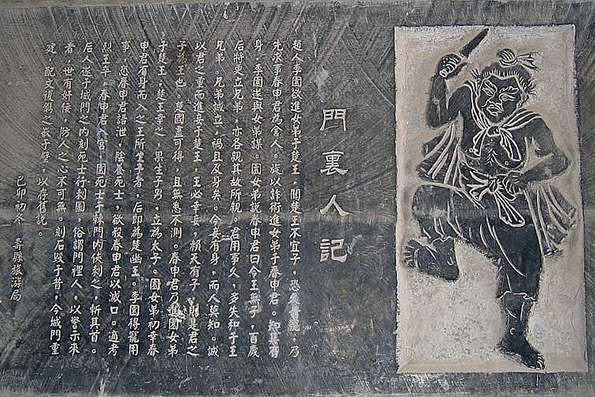 門裏人記
趙人李園欲進女弟于楚王，聞楚王不宜子，恐無寵，乃
先求事春申君為舍人。旋以詐術進女弟于春申君。知其有
身，李園遂與女弟謀。園女弟說春申君曰今王無子，百歲
后將更立兄弟，亦各親其故所親。君用事久，多失于王
兄弟，兄弟誠立，禍且及身矣。今妾有身，而人莫知。誠
以君之重而進妾于楚王，王必幸妾。賴天有子，則是君之
子為王也，楚國盡可得，且無不測。春申君乃進園女弟
于楚王，楚王幸之，果生子男，立為太子。園女弟初幸春
申君有身而入之王所生子者，后即為楚幽王。李園得寵用
事，恐春申君語泄，陰養死士，欲殺春申君以滅口。適考
烈王卒，春申君入宮，園死士于棘門內俠刺之，斬其首。
后人遂于城門之內刻死士行刺圖，俗謂門裡人，以警示來
者，世有奸佞，防人之心不可無。刻石毀于昔，今城門重
建，配文復鐫之嵌于壁，以存舊說。
己卯初冬 壽縣旅游局